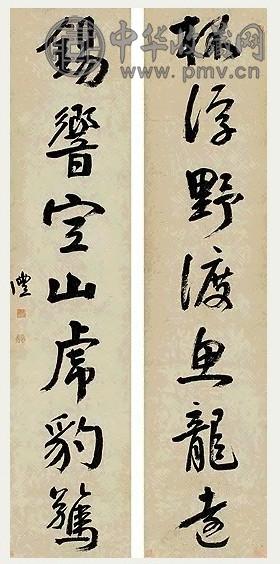 杯浮野渡魚龍遠
錫響空山虎豹驚
澧
中华收藏网
www.pmv.cn